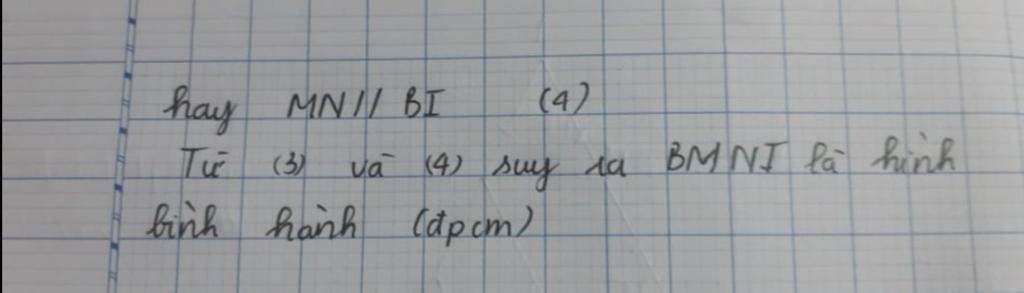 hay MN // BI (4)
Từ (3) và (4) suy ra BMNI là hình
bình hành (đpcm)